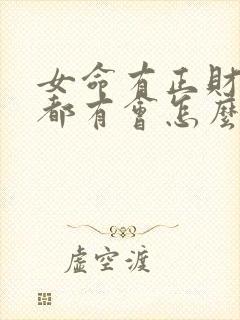 女命有正財
都有會怎麼
虛空渡